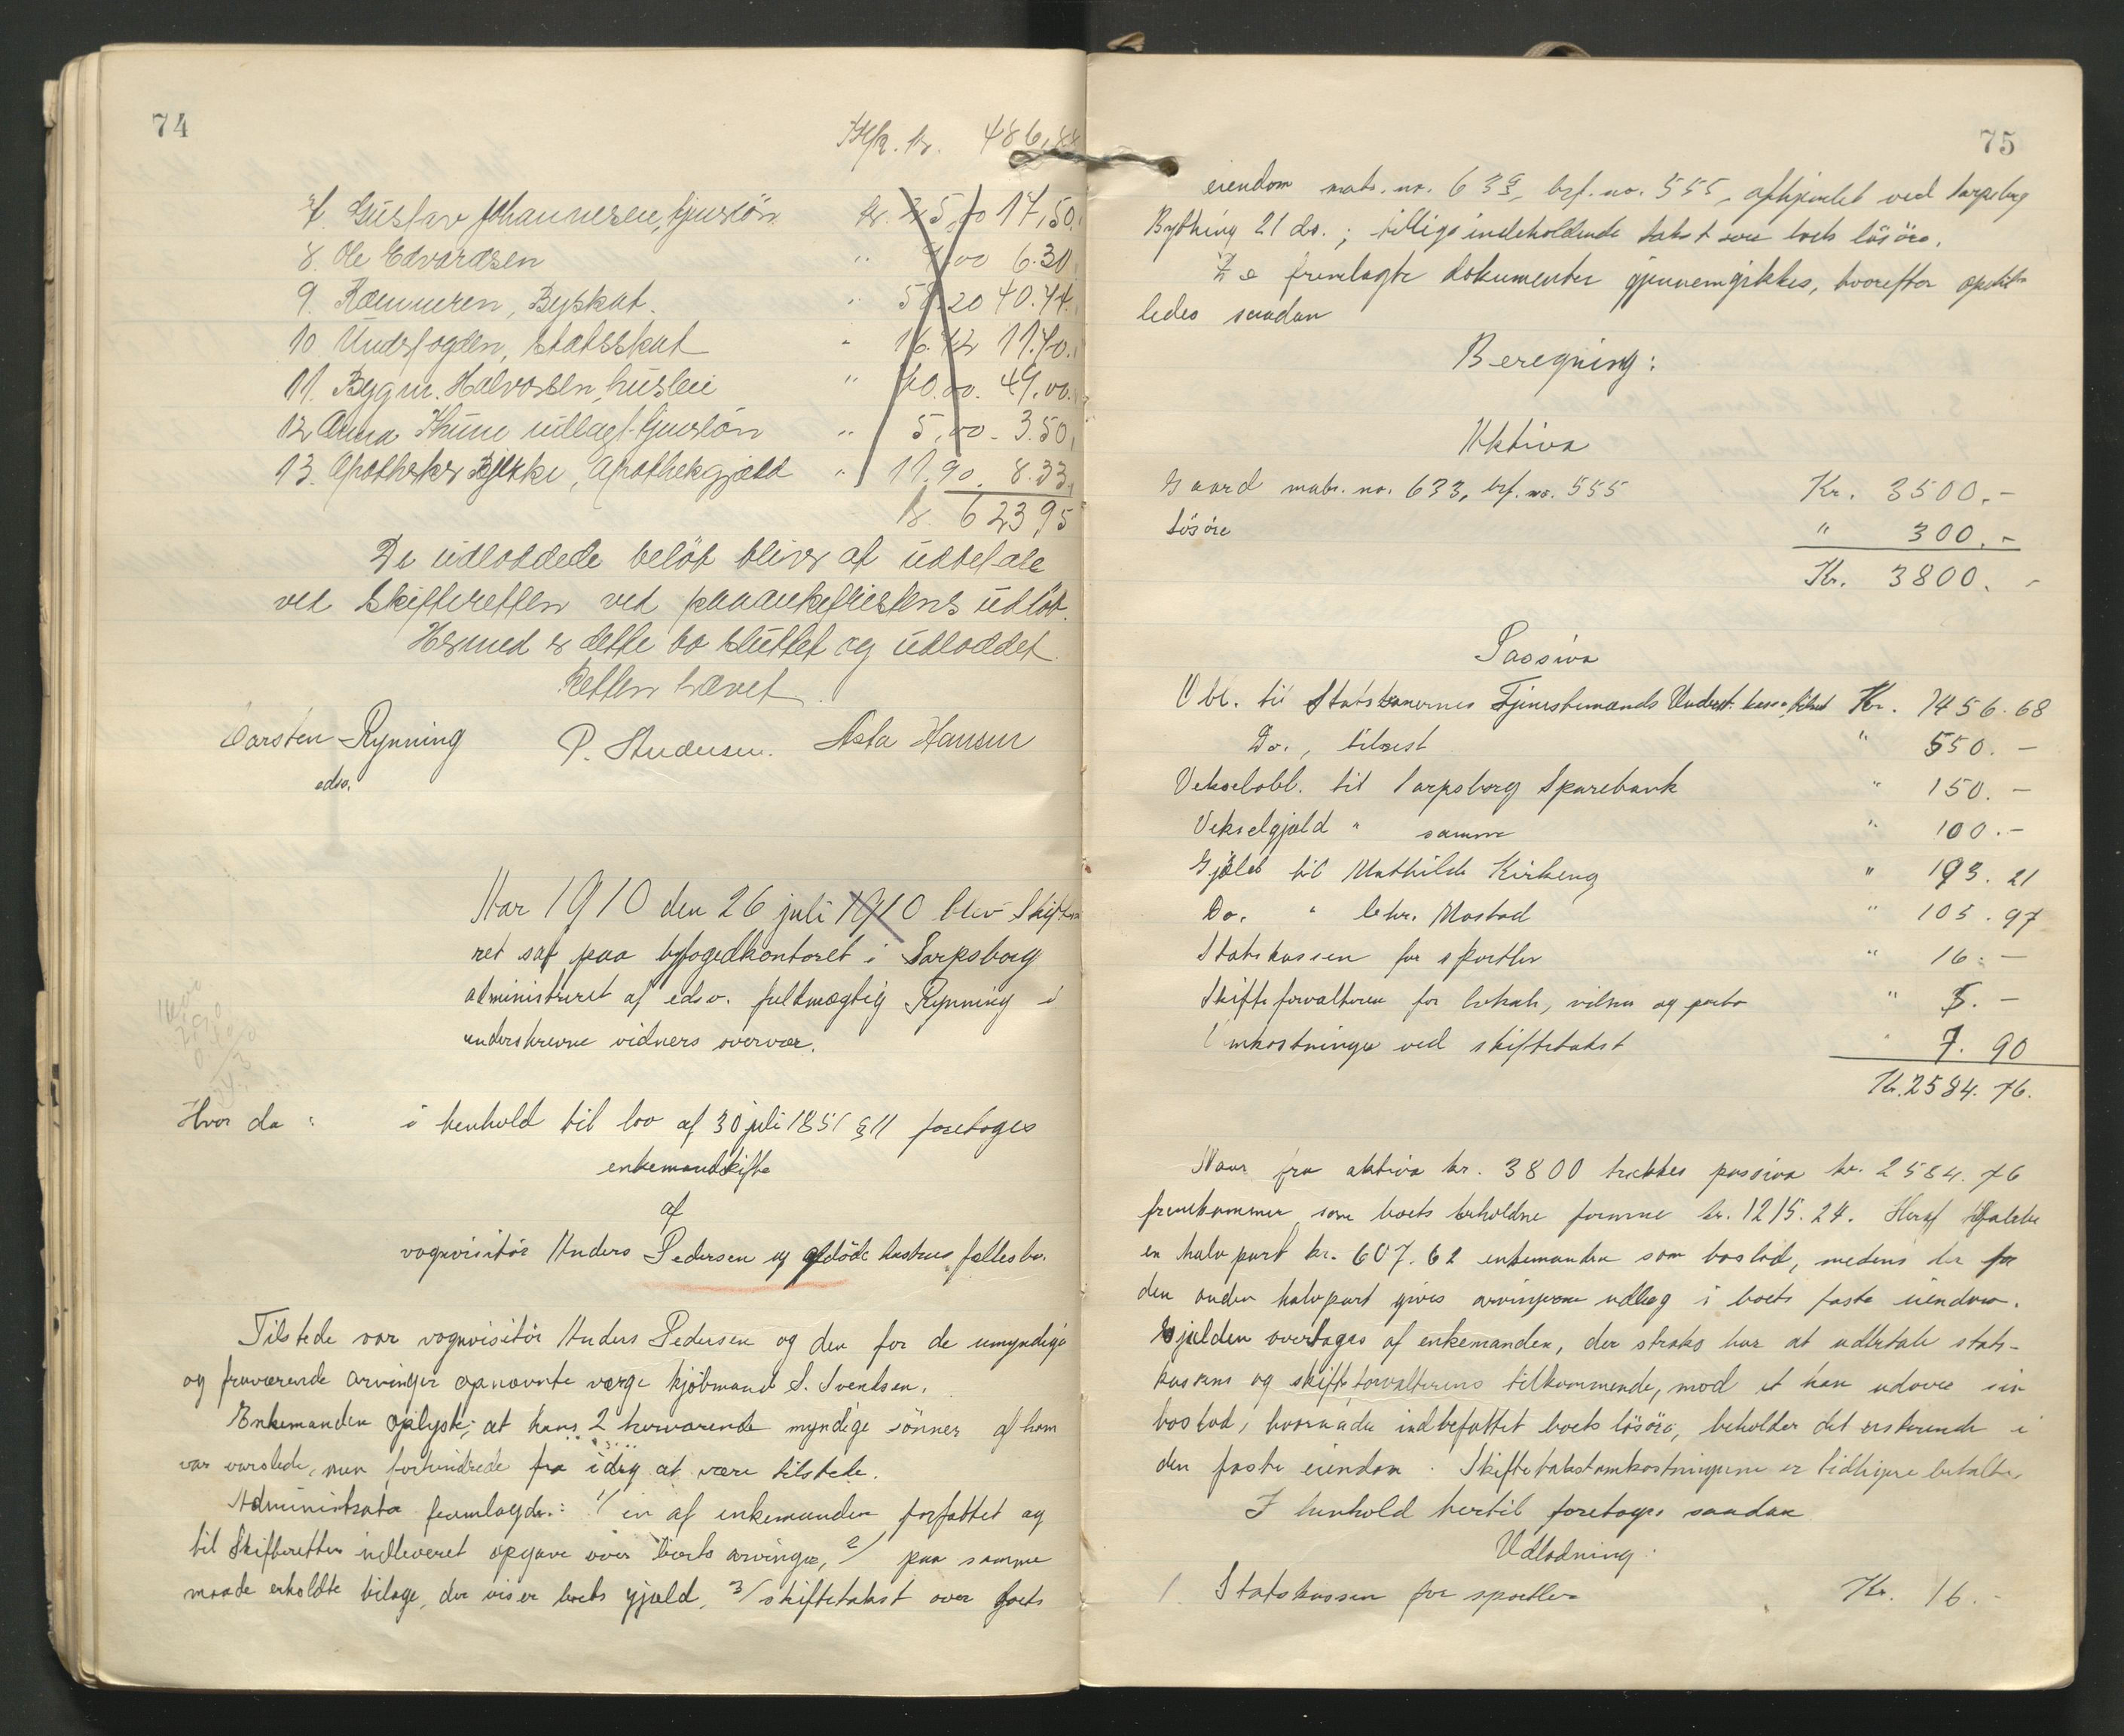 74
Trfr. kr. 486,88
7. Gustav Johannesen, tjenerløn kr. 25,00 17,50
8. Ole Edvardsen " 9,00 6.30
9. Kæmneren, Byskat. " 58.20 40.74.
10. Underfogden, statsskat " 16.72 11.70.
11. Bygm. Halvorsen, husleie " 70.00. 49.00.
12 Anna Thune utlagt tjenerløn " 5.00 - 3.50
13. Apotheker Bjerke, Apothekgjæld " 11.90. 8.33.
kr. 623,95
De udloddede beløb bliver at udbetale
ved Skifteretten ved paaankefristens udløb.
Hermed er dette bo sluttet og udloddet.
Retten hævet.
Carsten Rynning P. Andersen. Asta Hansen
edsv.
Aar 1910 den 26 juli 1910 blev Skifte
ret sat paa byfogedkontoret i Sarpsborg
administreret af edsv. fuldmægtig Rynning i
underskrevne vidners overvær.
Hvor da : i henhold til lov af 30 juli 1851 § 11 foretoges
enkemandsskifte
af
vognvisitør Anders Pedersen og afdøde hustrus fællesbo.
Tilstede var vognvisitør Anders Pedersen og den for de umyndige
og fraværende arvinger opnævnte værge kjøbmand S. Svendsen.
Enkemanden oplyste, at hans 2 herværende myndige sønner af ham
var varslede, men forhindrede fra idag at være tilstede.
Administrator fremlagde: 1/ en af enkemanden forfattet og
til Skifteretten indleveret opgave over boets arvinger, 2/ paa samme
maade erholdte bilage, der viser boets gjæld, 3/ skiftetakst over boets
75
eiendom matr. no. 633, brf. no. 555, afhjemlet ved Sarpsborg
Bything 21 ds.; tillige indeholdende takst over boets løsøre.
De fremlagte dokumenter gjennemgikkes, hvorefter opstil-
ledes saadan
Beregning:
Aktiva
Gaard matr. no. 633, brf. no. 555 Kr. 3500.-
Løsøre " 300.-
Kr. 3800. -
Passiva
Obl. til Statsbanernes Tjenestemænds Underst. kasse, Kr. 1456.68
Do., " 550. -
Vekselobl. til Sarpsborg Sparebank " 150. -
Vekselgjæld " samme " 100. -
Gjæld til Mathilde Kirkeng " 193. 21
Do. " Mostad " 105. 97
Statskassen for sportler " 16. -
Skifteforvalteren for lokale, vidner og porto " 5. -
Omkostninger ved skiftetakst " 7. 90
Kr. 2584. 76.
Naar fra aktiva kr. 3800 trækkes passiva kr. 2584. 76
fremkommer som boets beholdne formue kr. 1215. 24. Heraf tilfalder
en halvpart kr. 607. 62 enkemanden som boslod, medens der for
den anden halvpart gives arvingerne udlæg i boets faste eiendom.
Gjælden overtages af enkemanden, der straks har at udbetale stats-
kassens og skifteforvalterens tilkommende, mod at han udover sin
boslod, hvorunder indbefattet boets løsøre, beholder det resterende i
den faste eiendom. Skiftetakstomkostningerne er tidligere betalte.
I henhold hertil foretoges saadan
Udlodning:
1. Statskassen for sportler Kr. 16. -